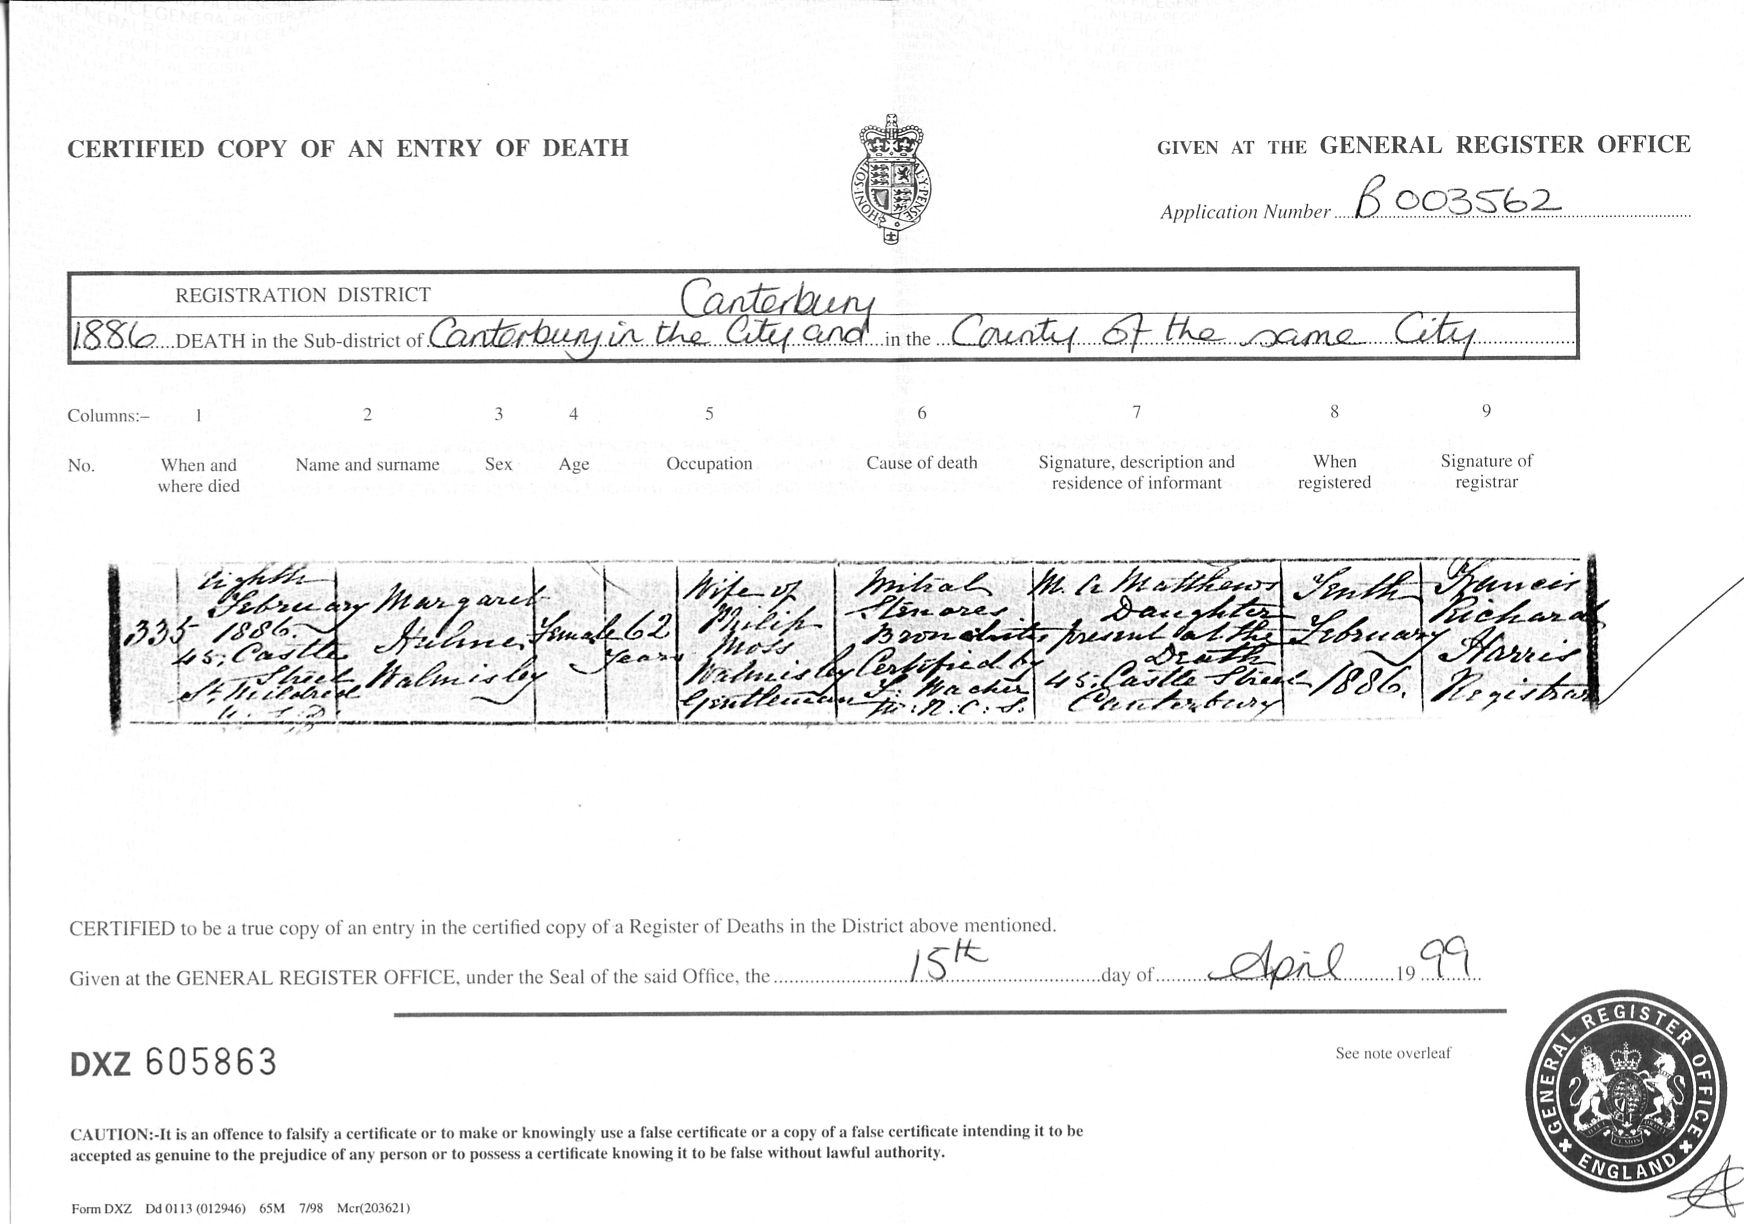 CERTIFIED COPY OF AN ENTRY OF DEATH
GIVEN AT THE GENERAL REGISTER OFFICE
HONI·SOIT PENSE
Application Number B 003562
REGISTRATION DISTRICT Canterbury
1886 DEATH in the Sub-district of Canterbury in the City and in the County of the same City
Columns:- 1 2 3 4 5 6 7 8 9
No. When and where died Name and surname Sex Age Occupation Cause of death Signature, description and residence of informant When registered Signature of registrar
335
Eighth
February
1886.
45, Castle
Street
St. Mildred
Margaret
Hulme
Walmisley
Female
62
Years
Wife of
Philip
Moss
Walmisley
Gentleman
Mitral
Bronchitis
Certified by
F. Wacher
M. R. C. S.
M. A Matthews
Daughter
present at the
Death
45, Castle Street
Canterbury
Tenth
February
1886.
Francis
Richard
Harris
Registrar
CERTIFIED to be a true copy of an entry in the certified copy of a Register of Deaths in the District above mentioned.
Given at the GENERAL REGISTER OFFICE, under the Seal of the said Office, the 15th day of April 1999
DXZ 605863
See note overleaf
GENERAL REGISTER OFFICE
ENGLAND
CAUTION:-It is an offence to falsify a certificate or to make or knowingly use a false certificate or a copy of a false certificate intending it to be
accepted as genuine to the prejudice of any person or to possess a certificate knowing it to be false without lawful authority.
Form DXZ Dd 0113 (012946) 65M 7/98 Mcr(203621)